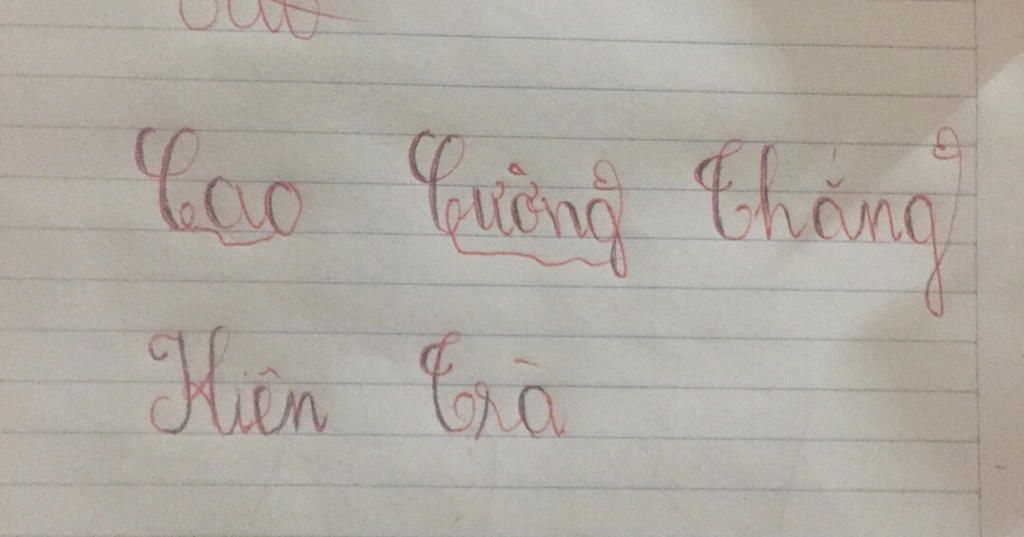 Cao Cường Thắng
Hiên Trà